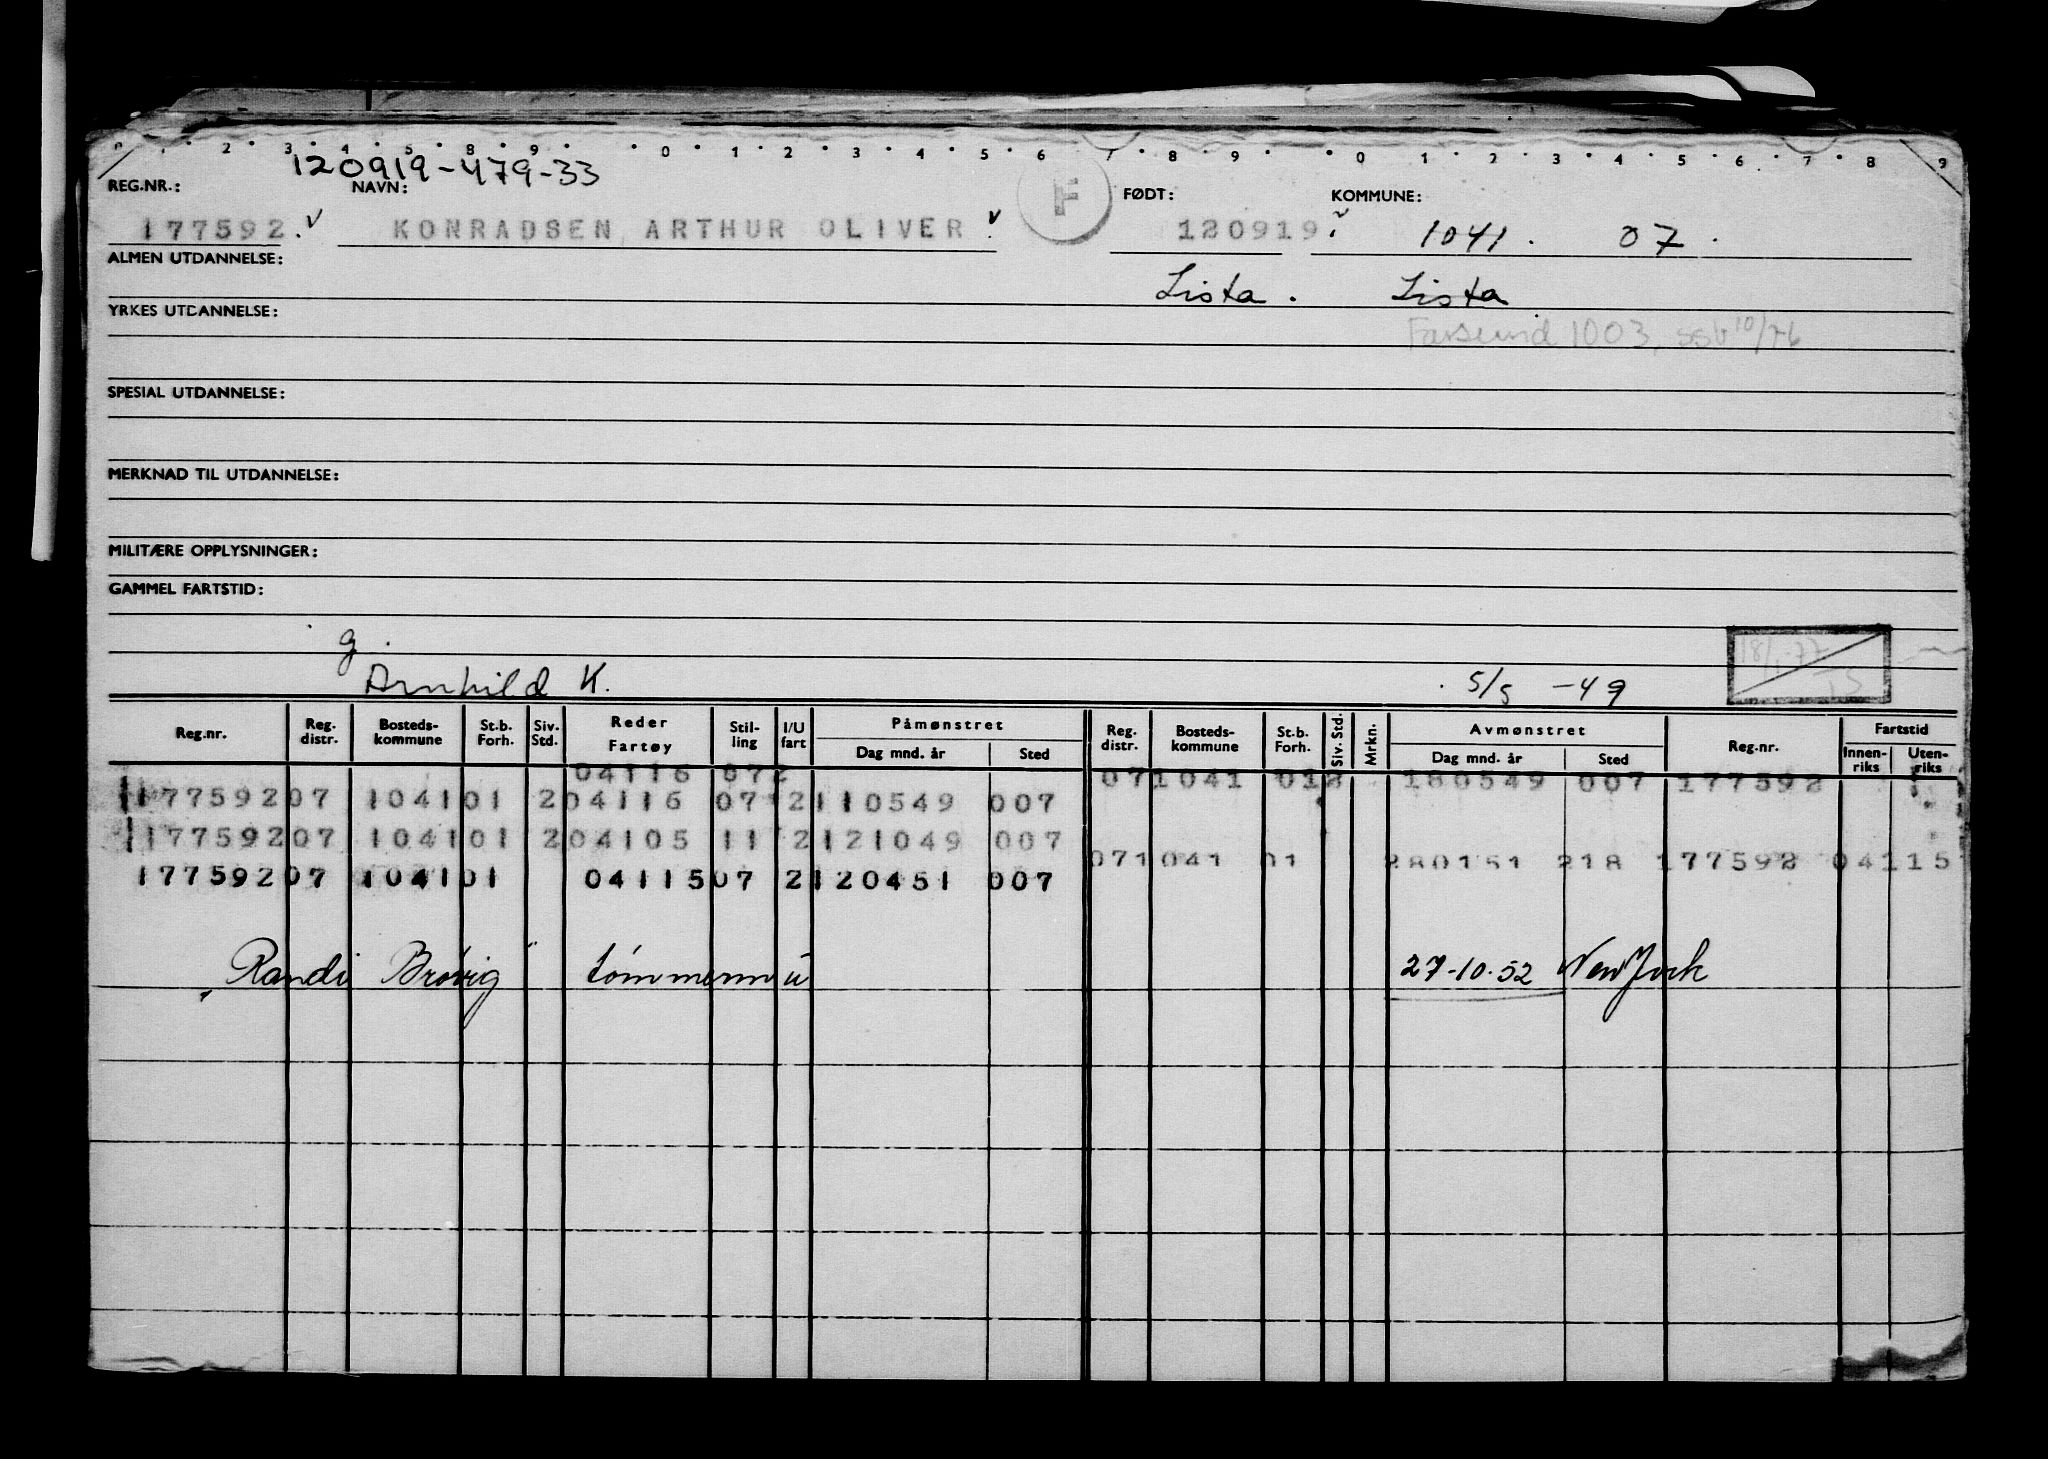 0 1 2 3 4 5 8 9 0 1 2 3 4 5 6 7 8 9 0 1 2 3 4 5 6 7 8 9
120919-479-33
REG.NR.: NAVN: FØDT: KOMMUNE:
177592. v KONRADSEN, ARTHUR OLIVER. v F 120919. v 1041. 07.
ALMEN UTDANNELSE:
Lista. Lista
YRKES UTDANNELSE:
Farsund 1003, ssb 10/76
SPESIAL UTDANNELSE:
MERKNAD TIL UTDANNELSE:
MILITÆRE OPPLYSNINGER:
GAMMEL FARTSTID:
g.
18/1-77
TS
Arnhild K. 5/5 -49
Reg.nr. Reg. distr. Bosteds-kommune St.b. Forh. Siv. Std. Reder Fartøy Stil-ling I/U fart Påmønstret Dag mnd. år Sted Reg. distr. Bosteds-kommune St.b. Forh. Siv. Std. Mrkn. Avmønstret Dag mnd. år Sted Reg.nr. Fartstid Innen-riks Uten-riks
04116 072 071041 012 180549 007 177592
177592 07 1041 01 2 04116 07 2 110549 007
177592 07 1041 01 2 04105 11 2 121049 007
071041 01 280151 218 177592 04115
177592 07 1041 01 04115 07 2 120451 007
"Randi Brøvig" tømmerm u 27-10-52 New York